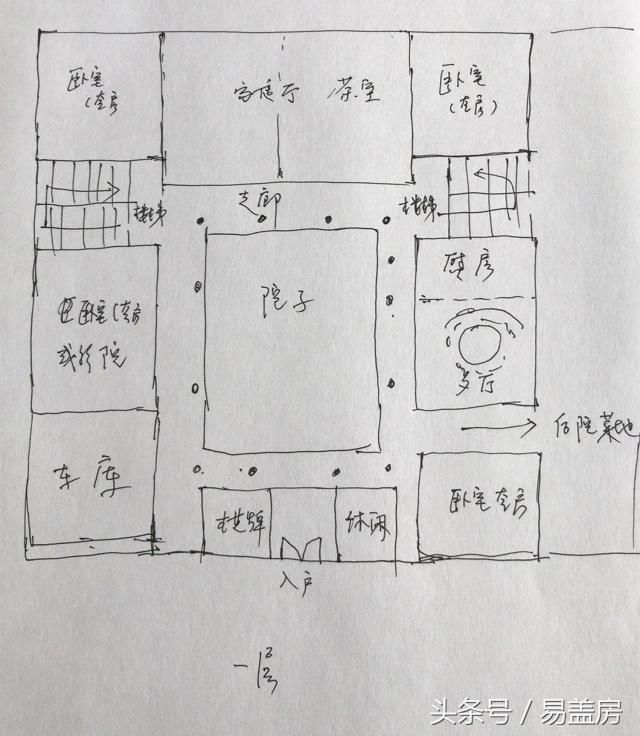 卧室
(套房
家庭厅 茶室
卧室
(套房)
楼梯
走廊
楼梯
院子
厨房
卧室(套房
或影院
餐厅
后院菜地
车库
棋牌
休闲
卧室套房
入户
一层
头条号 / 易盖房